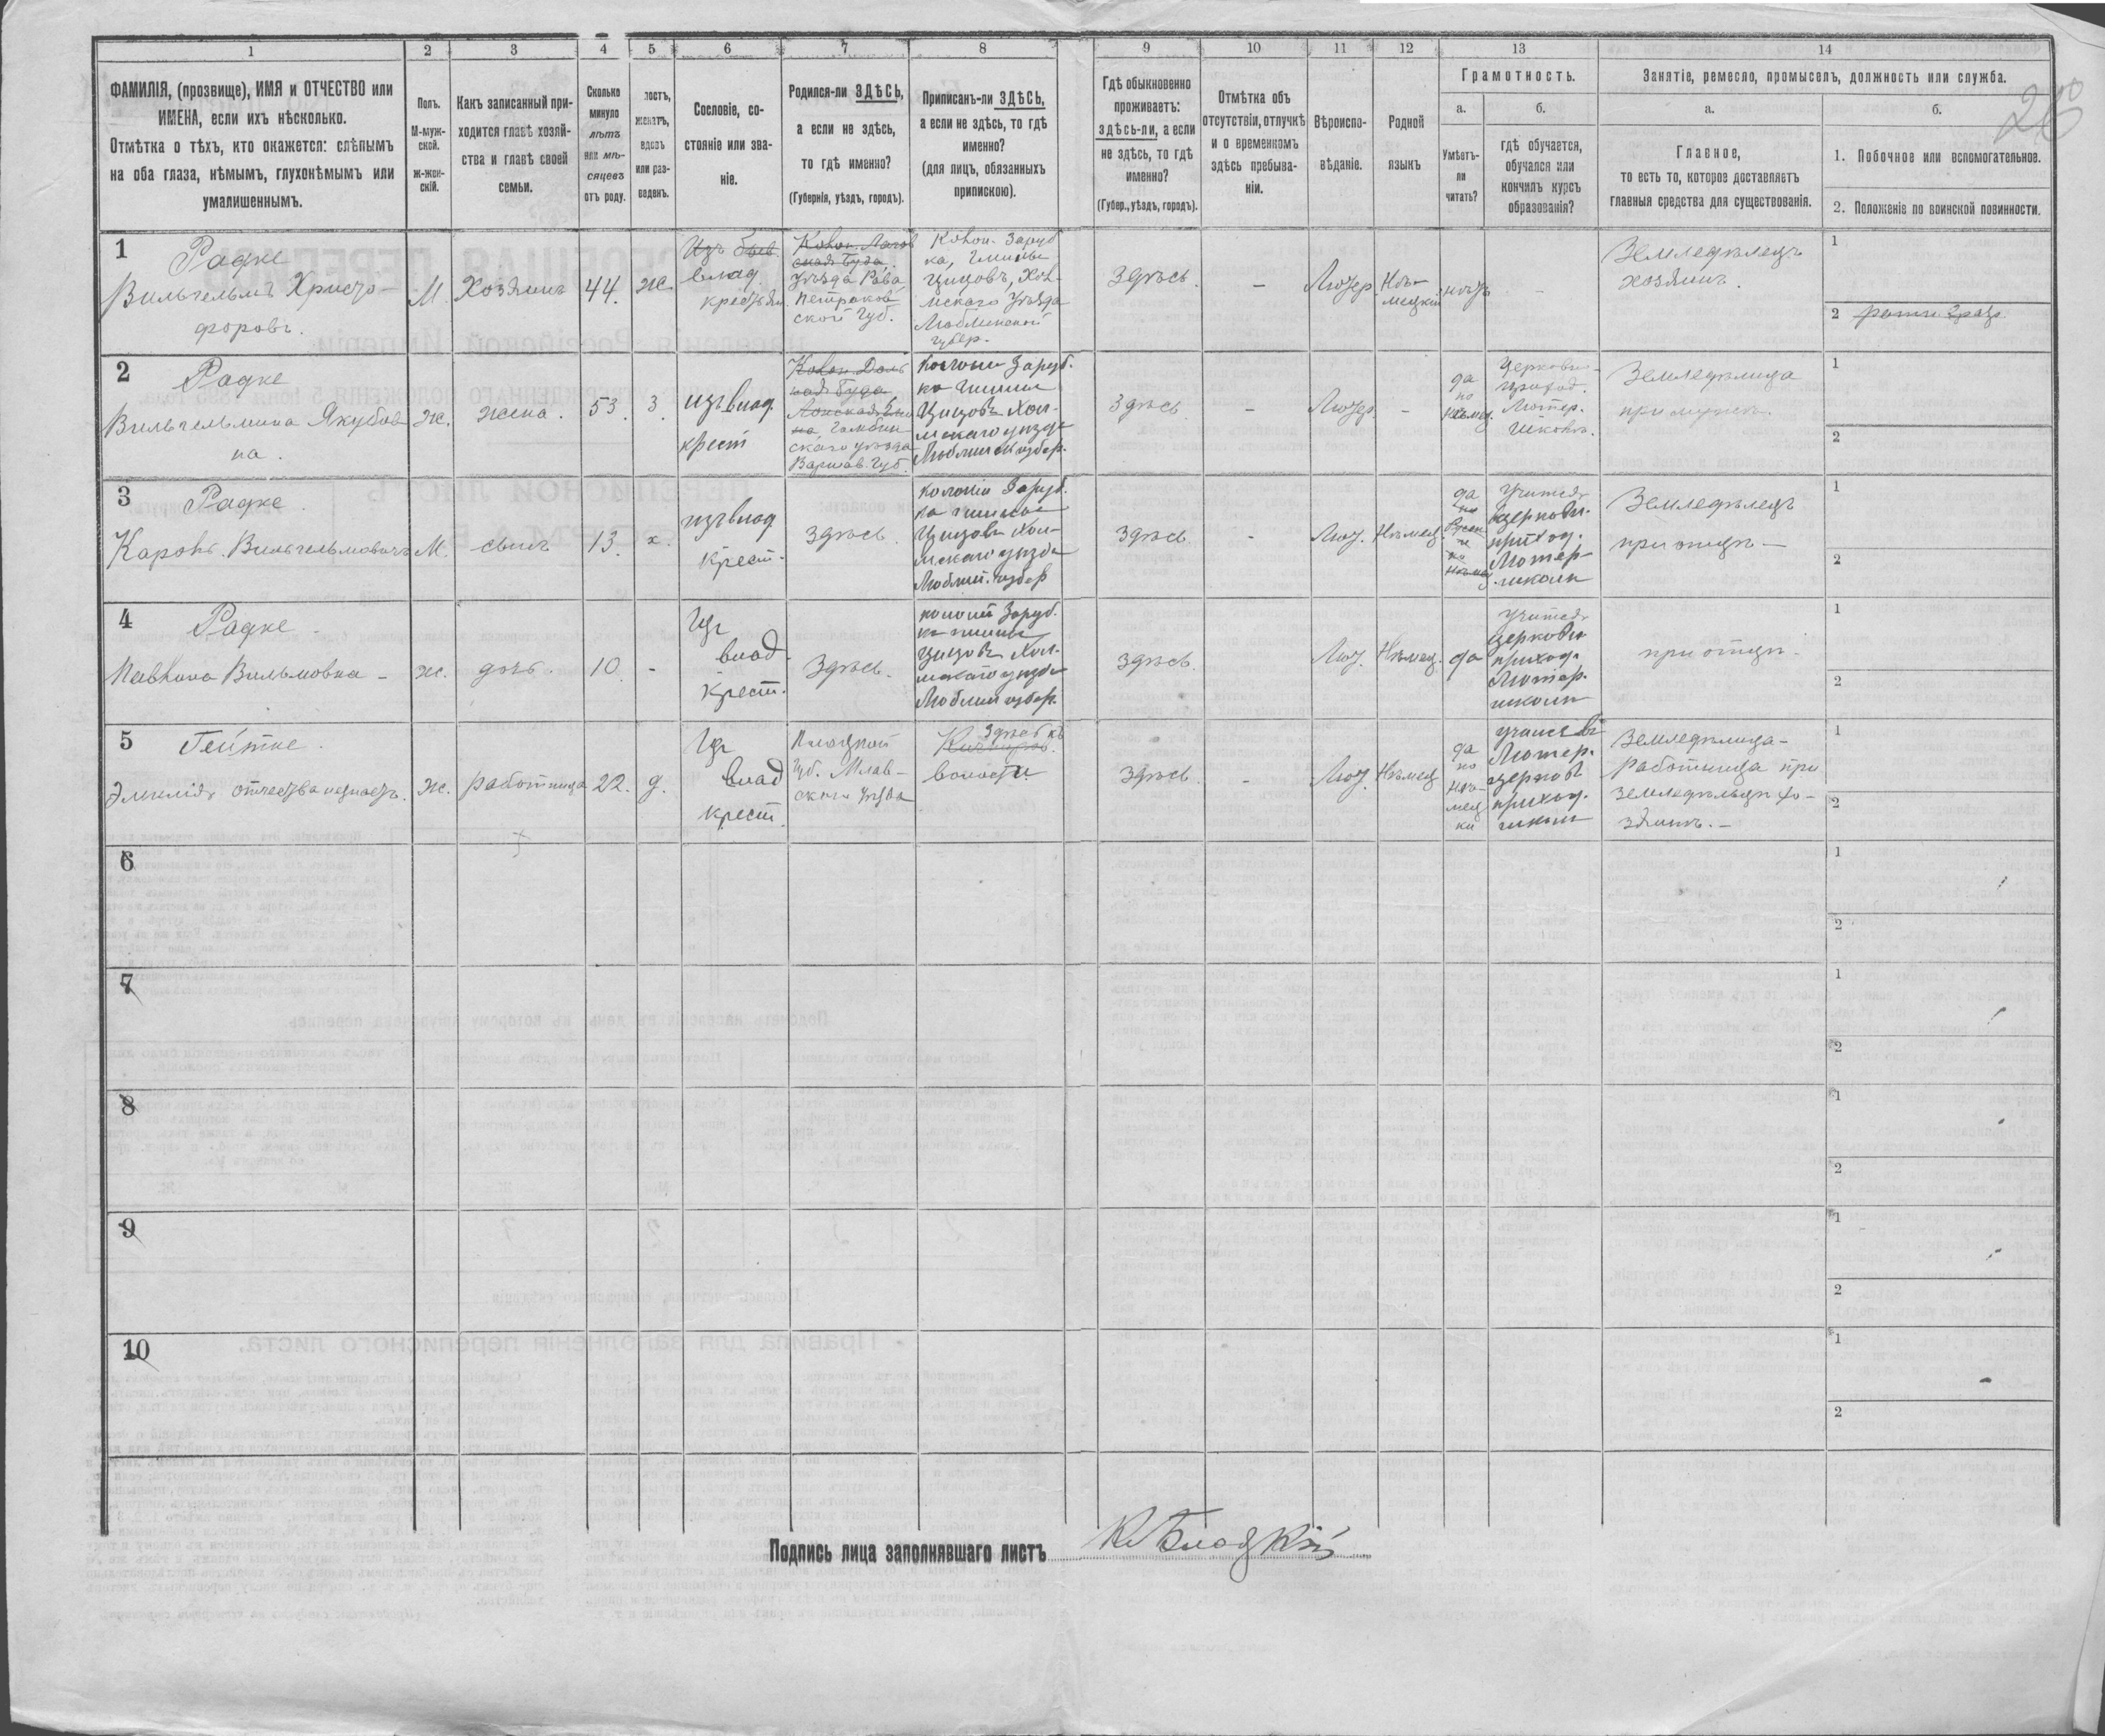 1 2 3 4 5 6 7 8 9 10 11 12 13 14
ФАМИЛІЯ, (прозвище), ИМЯ и ОТЧЕСТВО или
ИМЕНА, если ихъ нѣсколько.
Отмѣтка о тѣхъ, кто окажется: слѣпымъ
на оба глаза, нѣмымъ, глухонѣмымъ или
умалишеннымъ.
Полъ.
М-муж-
ской.
ж-жен-
скій.
Какъ записанный при-
ходится главѣ хозяй-
ства и главѣ своей
семьи.
Сколько
минуло
лѣтъ
или мѣ-
сяцевъ
отъ роду.
лостъ,
женатъ,
вдовъ
или раз-
веденъ.
Сословіе, со-
стояніе или зва-
ніе.
Родился-ли ЗДѢСЬ,
а если не здѣсь,
то гдѣ именно?
(Губернія, уѣздъ, городъ).
Приписанъ-ли ЗДѢСЬ,
а если не здѣсь, то гдѣ
именно?
(для лицъ, обязанныхъ
припискою).
Гдѣ обыкновенно
проживаетъ:
здѣсь-ли, а если
не здѣсь, то гдѣ
именно?
(Губер., уѣздъ, городъ).
Отмѣтка объ
отсутствіи, отлучкѣ
и о временномъ
здѣсь пребыва-
ніи.
Вѣроиспо-
вѣданіе.
Родной
языкъ
Грамотность.
а.
Умѣетъ-
ли
читать?
б.
гдѣ обучается,
обучался или
кончилъ курсъ
образованія?
Занятіе, ремесло, промыселъ, должность или служба.
а.
Главное,
то есть то, которое доставляетъ
главныя средства для существованія.
б.
1. Побочное или вспомогательное.
2. Положеніе по воинской повинности.
1
Радке
Вильгельмъ Христо-
форовъ.
М.
Хозяинъ
44.
ж.
Изъ
влад.
крестьян
уѣзда Рава
Петроков
ской Губ.
Колон. Заруб
ка, Гмины
Цицовъ, Хол-
мскаго Уѣзда
Люблинской
Губер.
Здѣсь
-
Лютер.
Нѣ-
мецкій
нѣтъ
-
Земледѣлецъ
хозяинъ.
1
2
2
Радке
Вильгельмина Якубов
на.
ж.
жена.
53.
з.
изъ влад.
крест
Гомбин
скаго уѣзда
Варшав. Губ.
Колонии Заруб.
ка Гмины
Цицовъ Хол-
мскаго уѣзда
Люблин губер.
Здѣсь
-
Лютер.
-
да
по
нѣмец.
Церковно-
приход.
Лютер.
школѣ.
Земледѣлица
при мужѣ.
1
2
3
Радке
Каролъ Вильгельмовичъ
М.
сынъ
13.
х.
изъ влад
крест.
Здѣсь.
колоніи Заруб.
ка гмины
Цицовъ Хол-
мскаго уѣзда
Люблин. губер
Здѣсь
-
Лют.
Нѣмец.
да
по
и
по
церковн.
приход.
Лютер
школи
Земледѣлецъ
при отцѣ -
1
2
4
Радке
Павлина Вильмовна -
ж.
дочь.
10.
-
Изъ
влад.
крест.
Здѣсь.
колоніи Заруб.
ка гмины
Цицовъ Хол-
мскаго уѣзда
Люблин губер.
Здѣсь.
Лют.
Нѣмец.
да
церковн
приход.
Лютер.
школи
при отцѣ -
1
2
5
Гейтке
Эмилія отчества не знаетъ.
ж.
работница
22.
д.
Изъ
влад
крест.
Плоцкой
Губ. Млав-
скаго Уѣзда
волости
Здѣсь
-
Лют.
Нѣмец
да
по
нѣ-
мец
ки
Лютер.
церков
приход.
школи
Земледѣлица-
работница при
земледѣльцѣ хо-
зяинѣ. -
1
2
6
1
2
7
1
2
8
1
2
9
1
2
10
1
2
Подпись лица заполнявшаго листъ